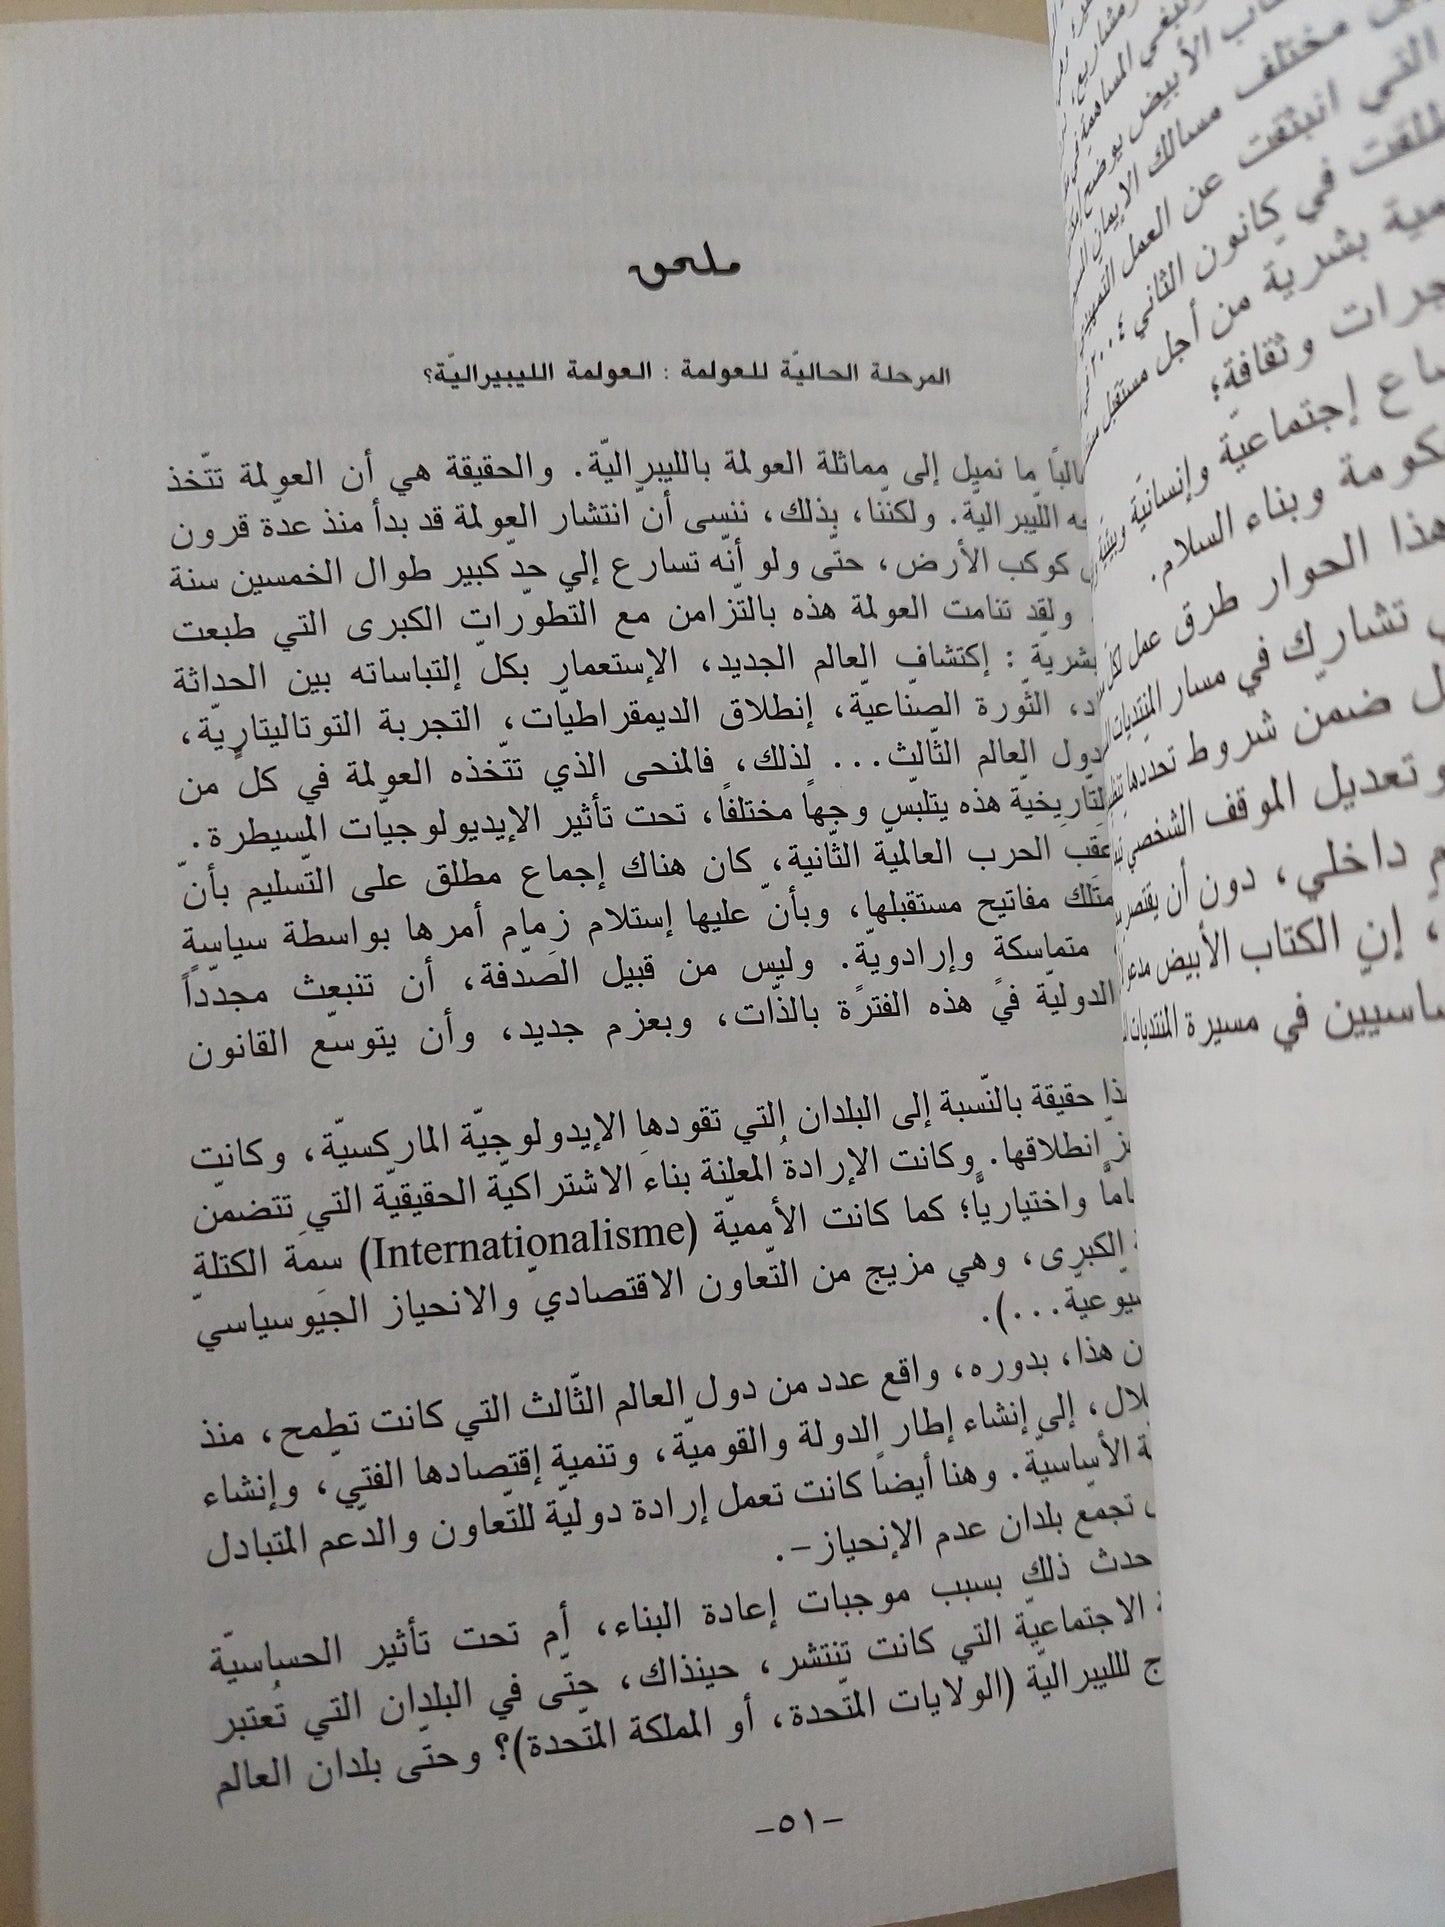 ملحق
المرحلة الحاليّة للعولمة : العولمة الليبيراليّة؟
ما نميل إلى مماثلة العولمة بالليبيراليّة. والحقيقة هي أن العولمة تتّخذ
اللّيبراليّة. ولكنّنا، بذلك، ننسى أنّ انتشار العولمة قد بدأ منذ عدّة قرون
كوكب الأرض، حتّى ولو أنّه تسارع إلى حدّ كبير طوال الخمسين سنة
ولقد تنامت العولمة هذه بالتّزامن مع التّطوّرات الكبرى التي طبعت
: إكتشاف العالم الجديد، الإستعمار بكلّ إلتباساته بين الحداثة
الثّورة الصّناعيّة، إنطلاق الديمقراطيّات، التجربة التوتاليتاريّة،
دول العالم الثّالث... لذلك، فالمنحى الذي تتّخذه العولمة في كلّ من
هذه يتلبّس وجهاً مختلفاً، تحت تأثير الإيديولوجيّات المسيطرة.
الحرب العالميّة الثّانية، كان هناك إجماع مطلق على التّسليم بأنّ
مفاتيح مستقبلها، وبأنّ عليها إستلام زمام أمرها بواسطة سياسة
متماسكة وإرادويّة. وليس من قبيل الصّدفة، أن تنبعث مجدّداً
الدوليّة في هذه الفترة بالذّات، وبعزم جديد، وأن يتوسّع القانون
حقيقة بالنّسبة إلى البلدان التي تقودها الإيدولوجيّة الماركسيّة، وكانت
انطلاقها. وكانت الإرادةُ المعلنة بناءَ الاشتراكيّة الحقيقيّة التي تتضمّن
واختياريًّا؛ كما كانت الأمميّة (Internationalisme) سمَةَ الكتلة
الكبرى، وهي مزيج من التّعاون الاقتصاديّ والانحياز الجيَوسياسي
...).
هذا، بدوره، واقع عدد من دول العالم الثّالث التي كانت تطمح، منذ
إلى إنشاء إطار الدولة والقوميّة، وتنمية إقتصادها الفتيّ، وإنشاء
الأساسيّة. وهنا أيضاً كانت تعمل إرادة دوليّة للتّعاون والدّعم المتبادل
تجمّع بلدان عدم الإنحياز-.
حدث ذلك بسبب موجبات إعادة البناء، أم تحت تأثير الحساسيّة
الاجتماعيّة التي كانت تنتشر، حينذاك، حتّى في البلدان التي تُعتبر
لليبراليّة (الولايات المتّحدة، أو المملكة المتّحدة)؟ وحتّى بلدان العالم
-٥١-
مختلف مسالك الإيمان
التي انبثقت عن العمل
في كانون الثاني ٢٠٠٤
بشريّة من أجل مستقبل
وثقافة؛
إجتماعيّة وإنسانيّة
وبناء السلام.
هذا الحوار طرق عمل
تشارك في مسار المنتديات
ضمن شروط تحددها
وتعديل الموقف الشخصي
داخلي، دون أن يقتصر
، إن الكتاب الأبيض
في مسيرة المنتديات